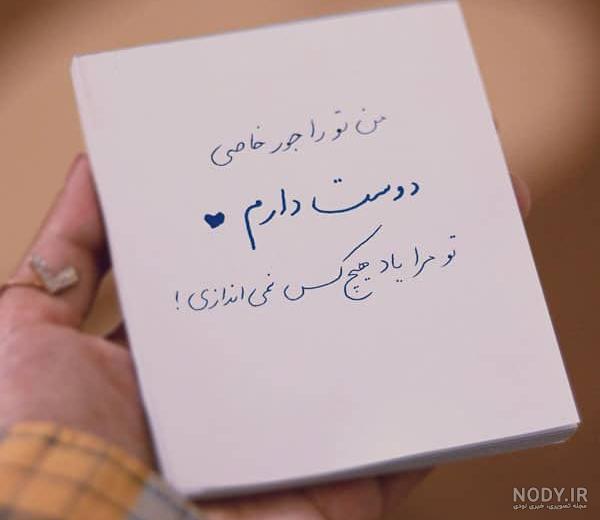 من تو را جور خاصی
دوست دارم ♥
تو مرا یاد هیچ کس نمی اندازی !
NODY.IR
مجله تصویری، خبری نودی